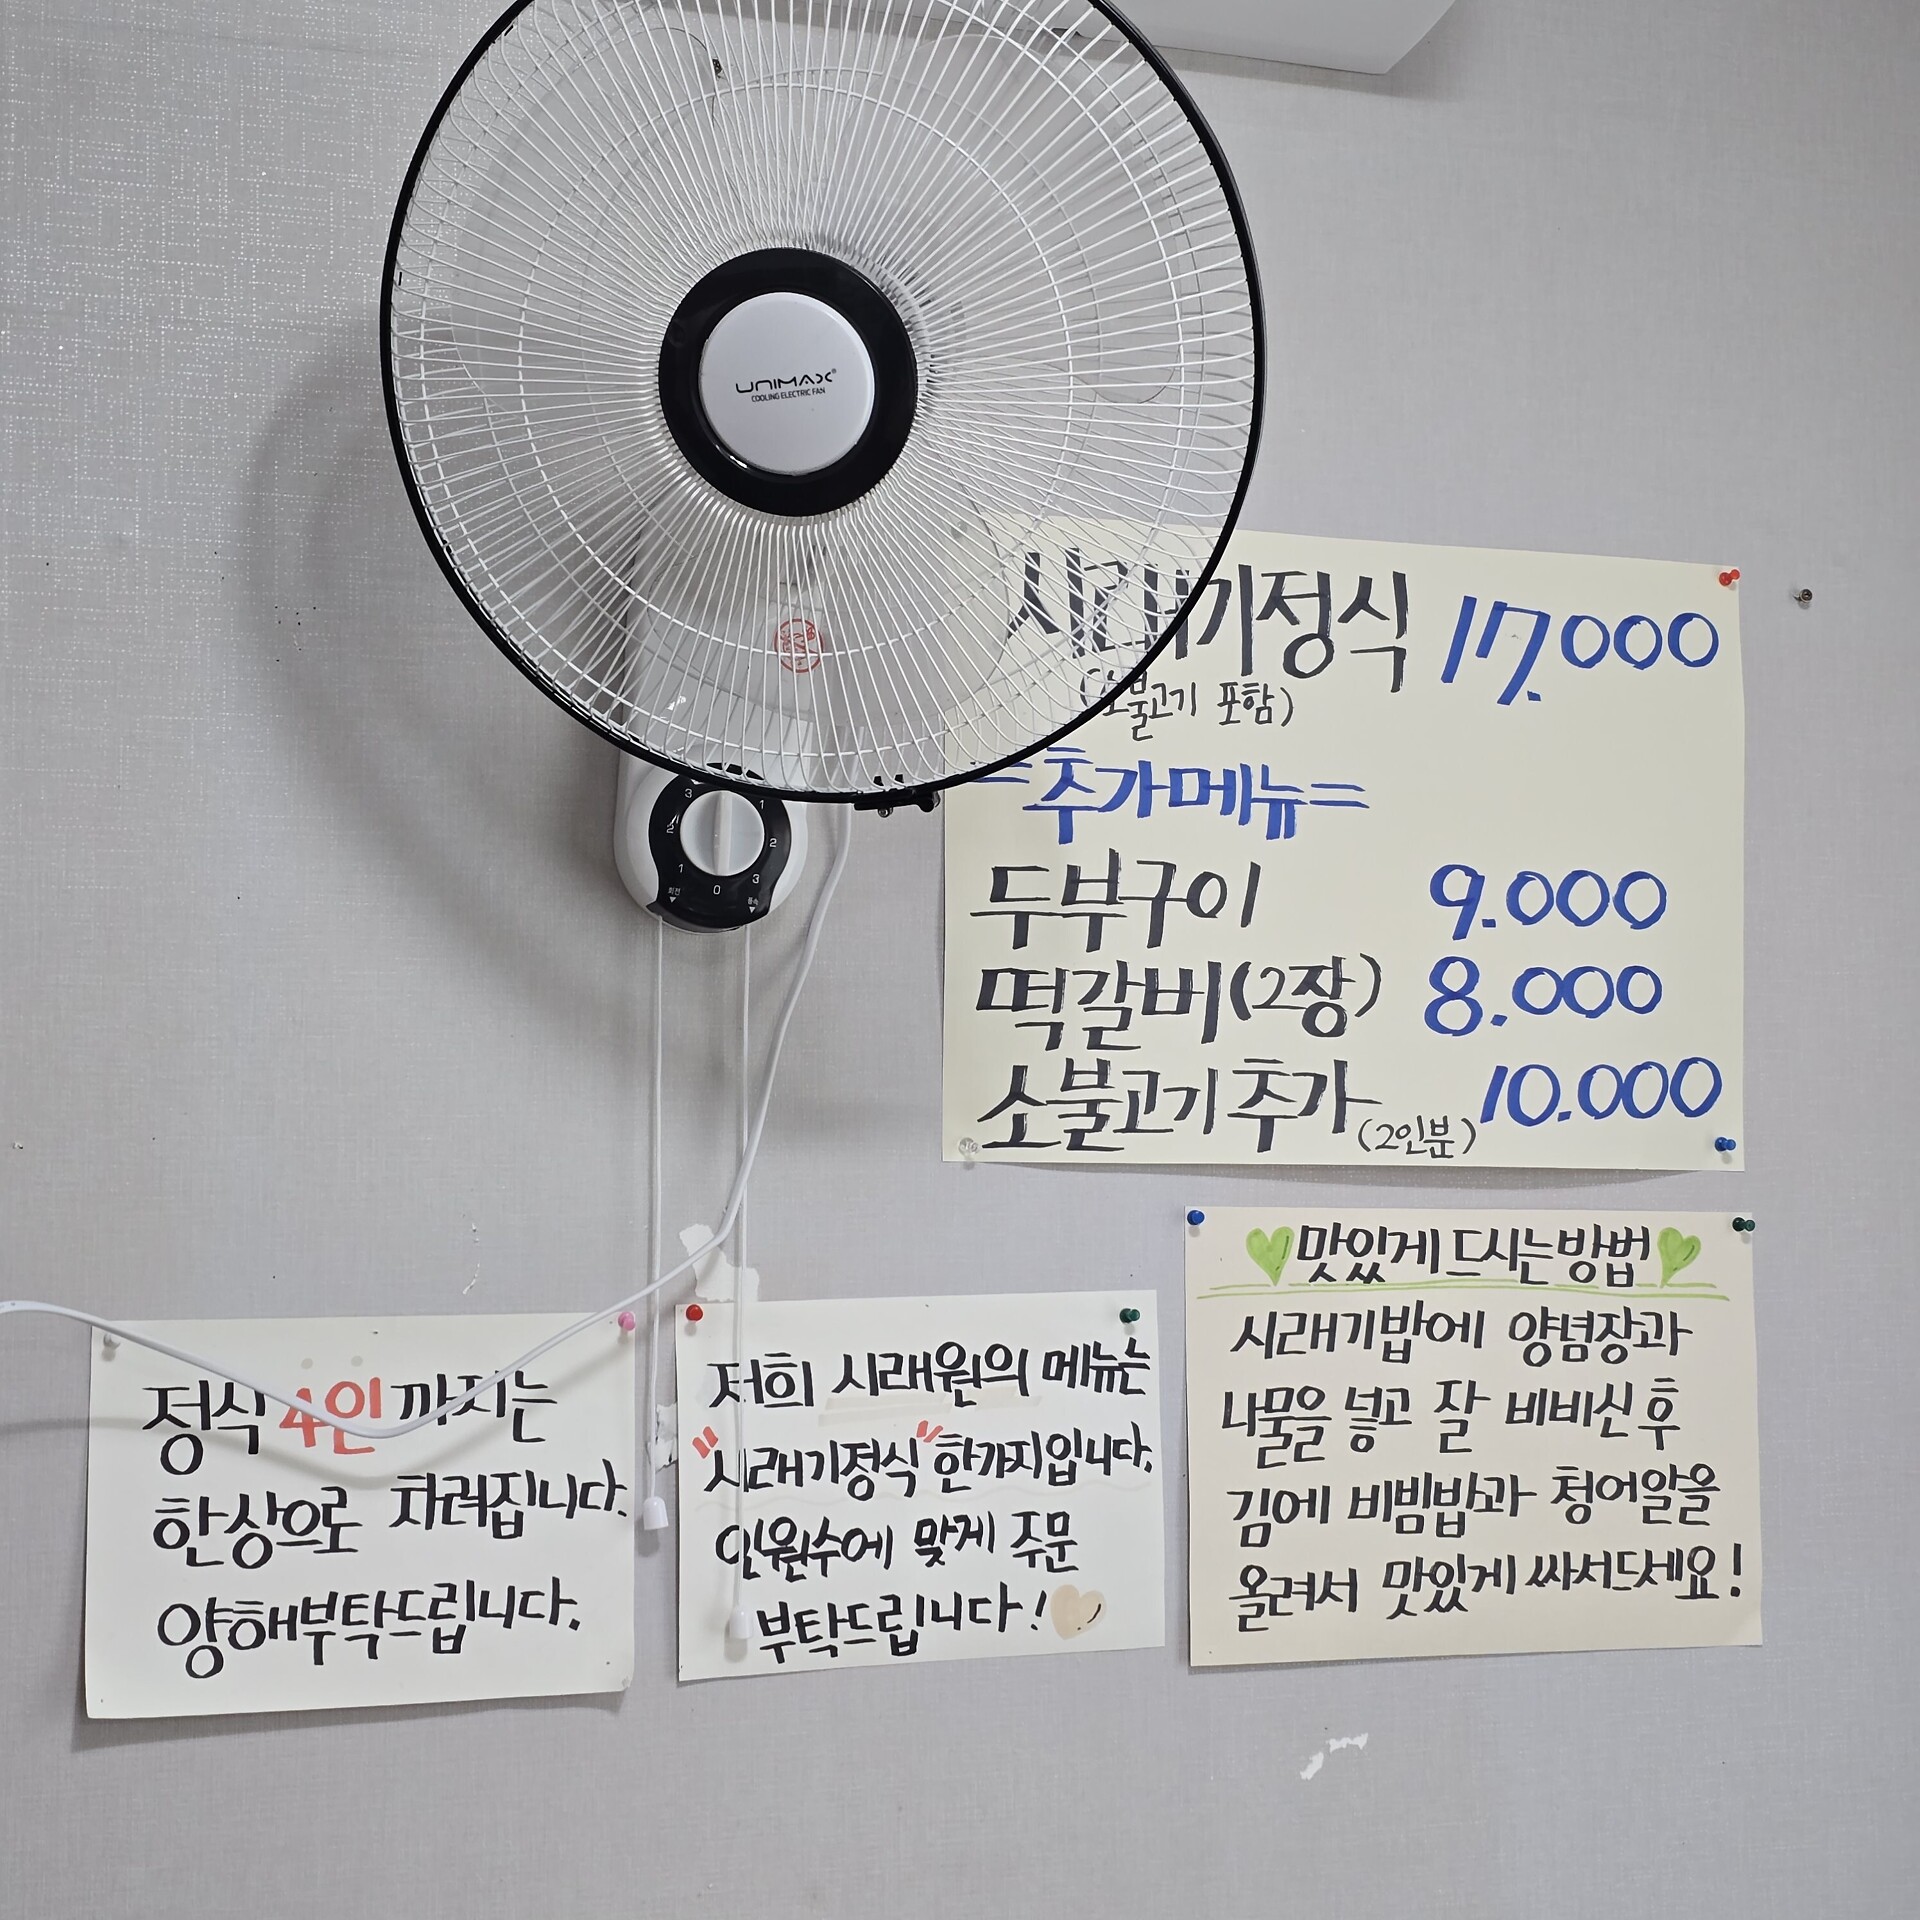 UNIMAX
COOLING ELECTRIC FAN
3 1
2 2
1 3
0
회전 풍속
시래기정식 17.000
(소불고기 포함)
=추가메뉴=
두부구이 9.000
떡갈비(2장) 8.000
소불고기추가(2인분) 10.000
맛있게드시는방법
시래기밥에 양념장과
나물을 넣고 잘 비비신후
김에 비빔밥과 청어알을
올려서 맛있게 싸서드세요!
정식 4인 까지는
한상으로 차려집니다.
양해부탁드립니다.
저희 시래원의 메뉴는
"시래기정식" 한가지입니다.
인원수에 맞게 주문
부탁드립니다!